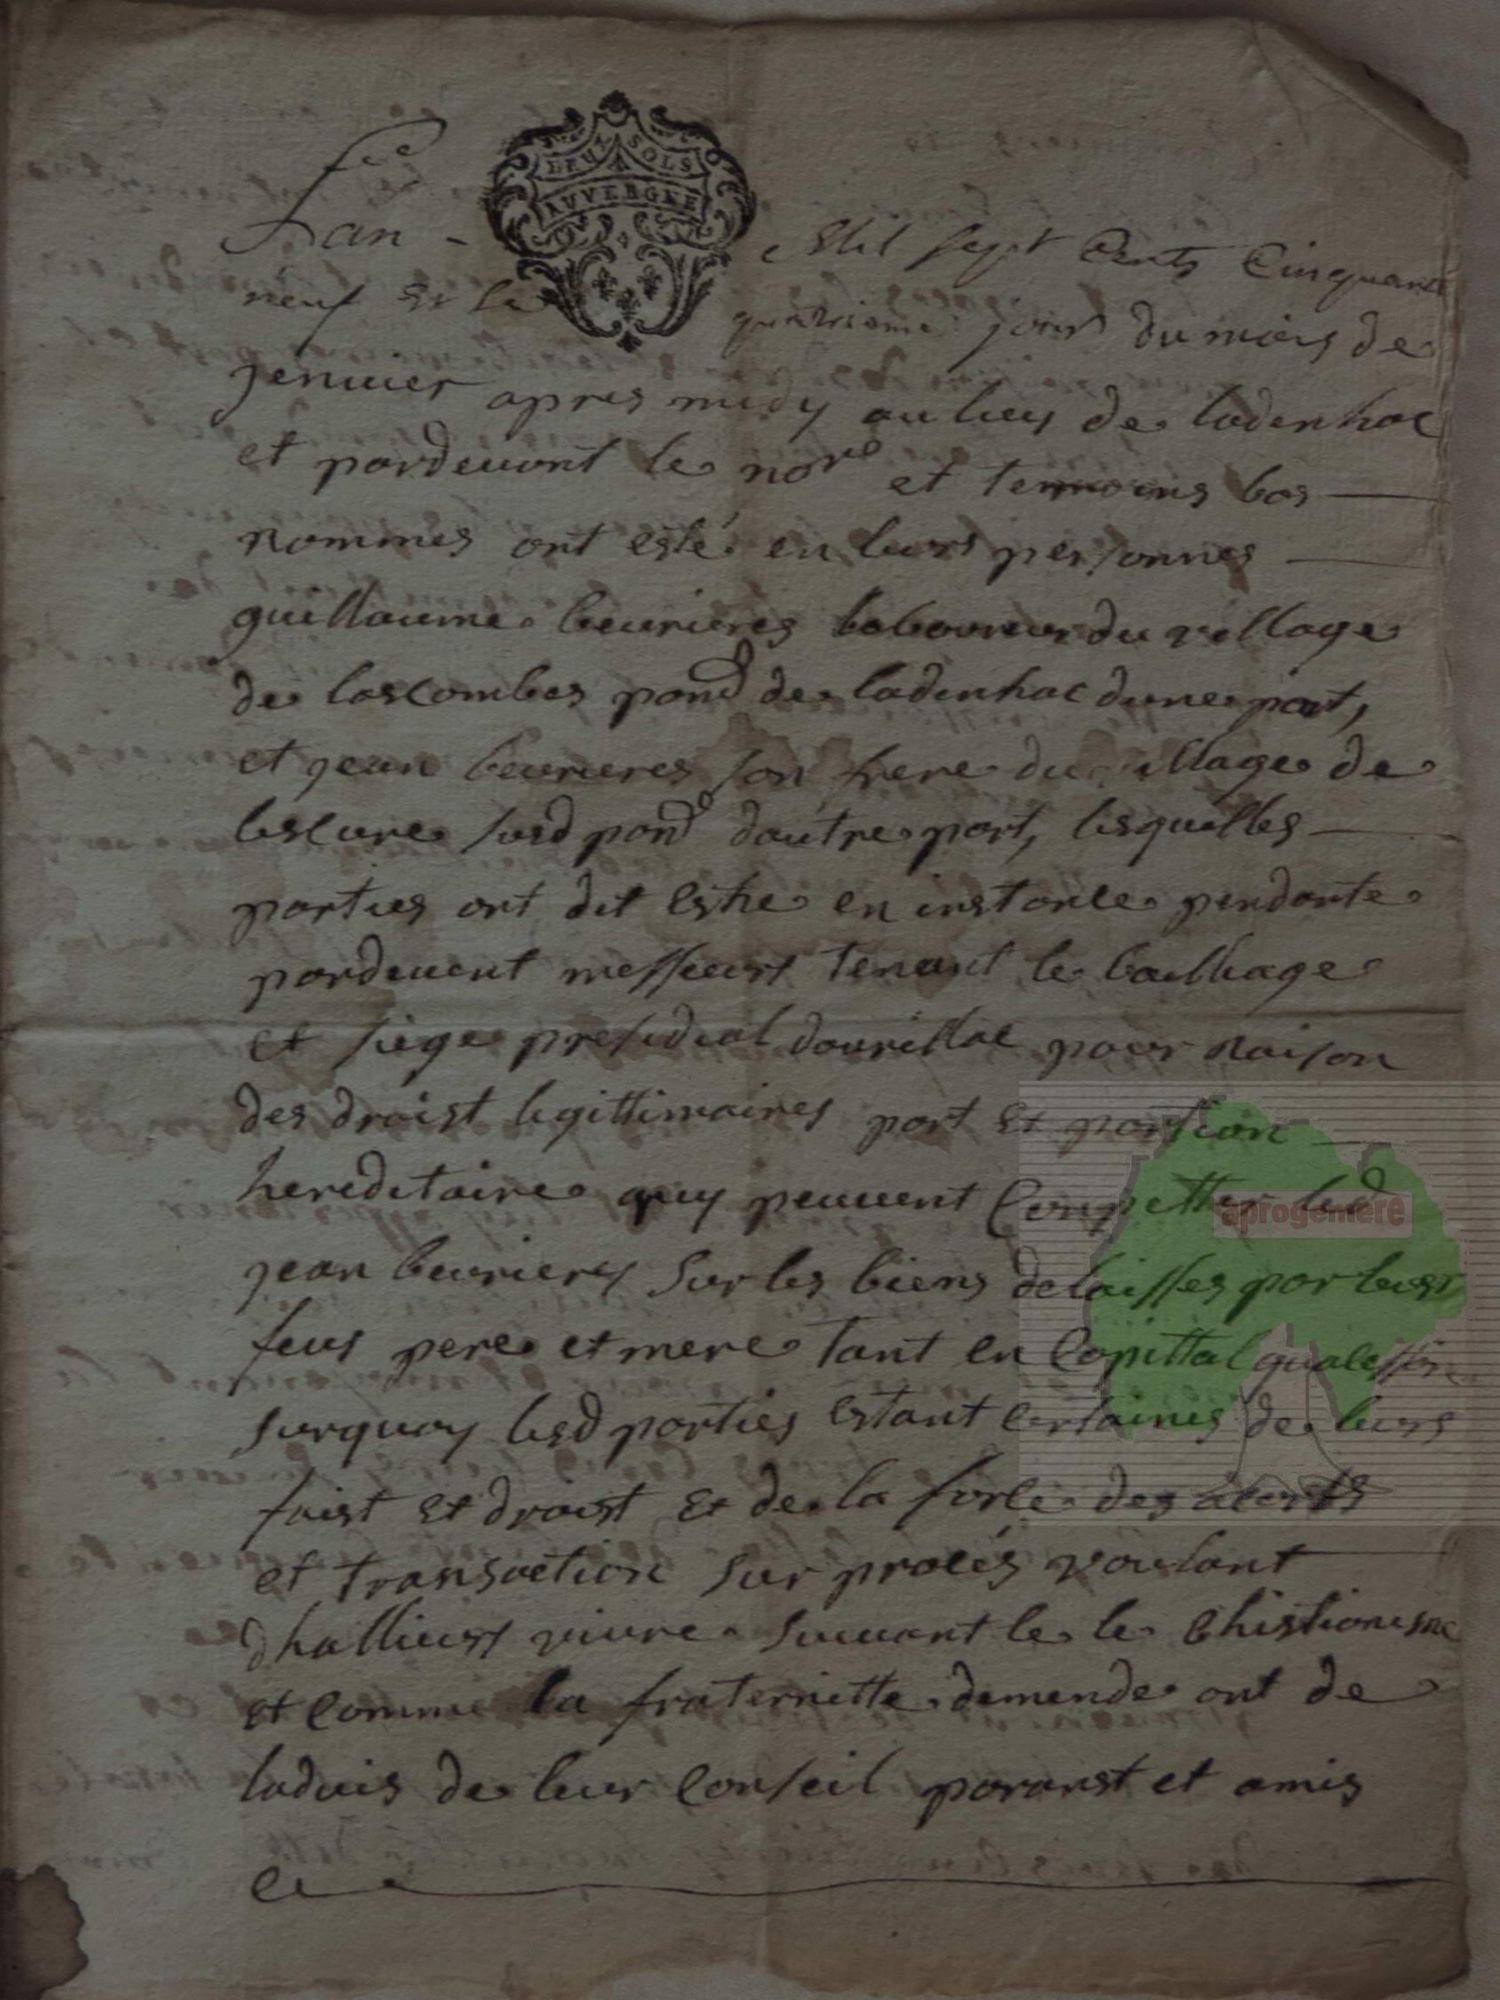 DEUX SOLS
AUVERGNE
Lan Mil sept Cents Cinquante
neuf Et le quatriesme jour du mois de
jenuier apres midy au lieu de ladinhac
et pardeuant le nore et temoins bas
nommes ont esté en leurs personnes
guillaume beurieres laboureur du village
de lascombes parod de ladinhac dune part,
et jean beurieres son frere du village de
lescure susd parod dautre part, lesquelles
parties ont dit estre en instance pendante
pardeuent messieurs tenant le bailliage
et siege presidial daurillac pour Raison
des droist legittimaires part Et portion
hereditaire quy peuuent Conpetter led
jean beurieres Sur les biens delaisses par leur
feus pere et mere tant en Capittal qu
surquoy lesd parties Estant certaines de leurs
faist Et droist Et de la force des acorts
et transaction sur procés voulant
dhallieurs viure suiuant le le Chistionisme
et Comme la fraternitte demende ont de
laduis de leur Conseil paranst et amis
aprogemere